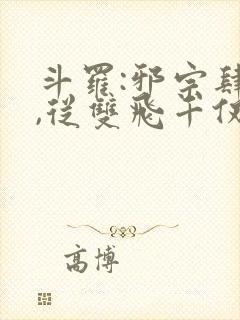 斗羅:邪宗肆
,從雙飛千仞
高博